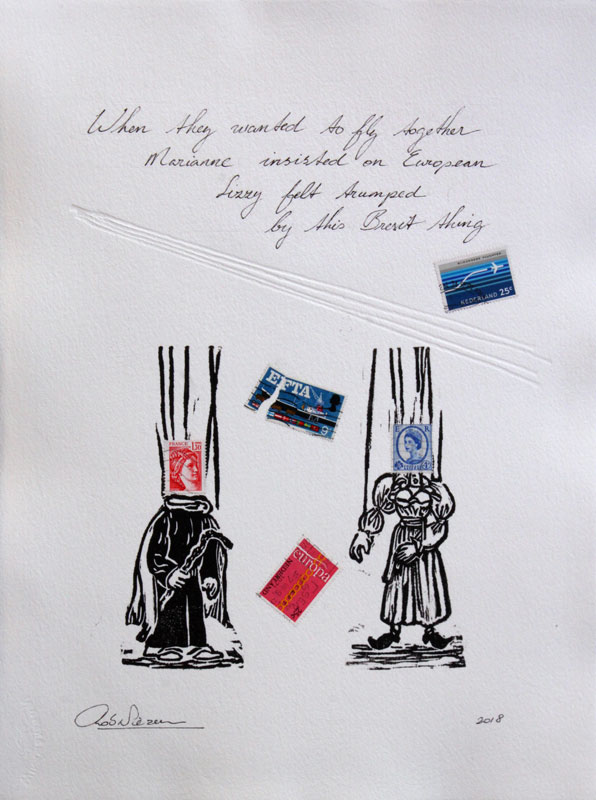 When they wanted to fly together
Marianne insisted on European
Lizzy felt trumped
by this Brexit thing
NEDERLAND 25c
EFTA
9
FRANCE
europa
2018